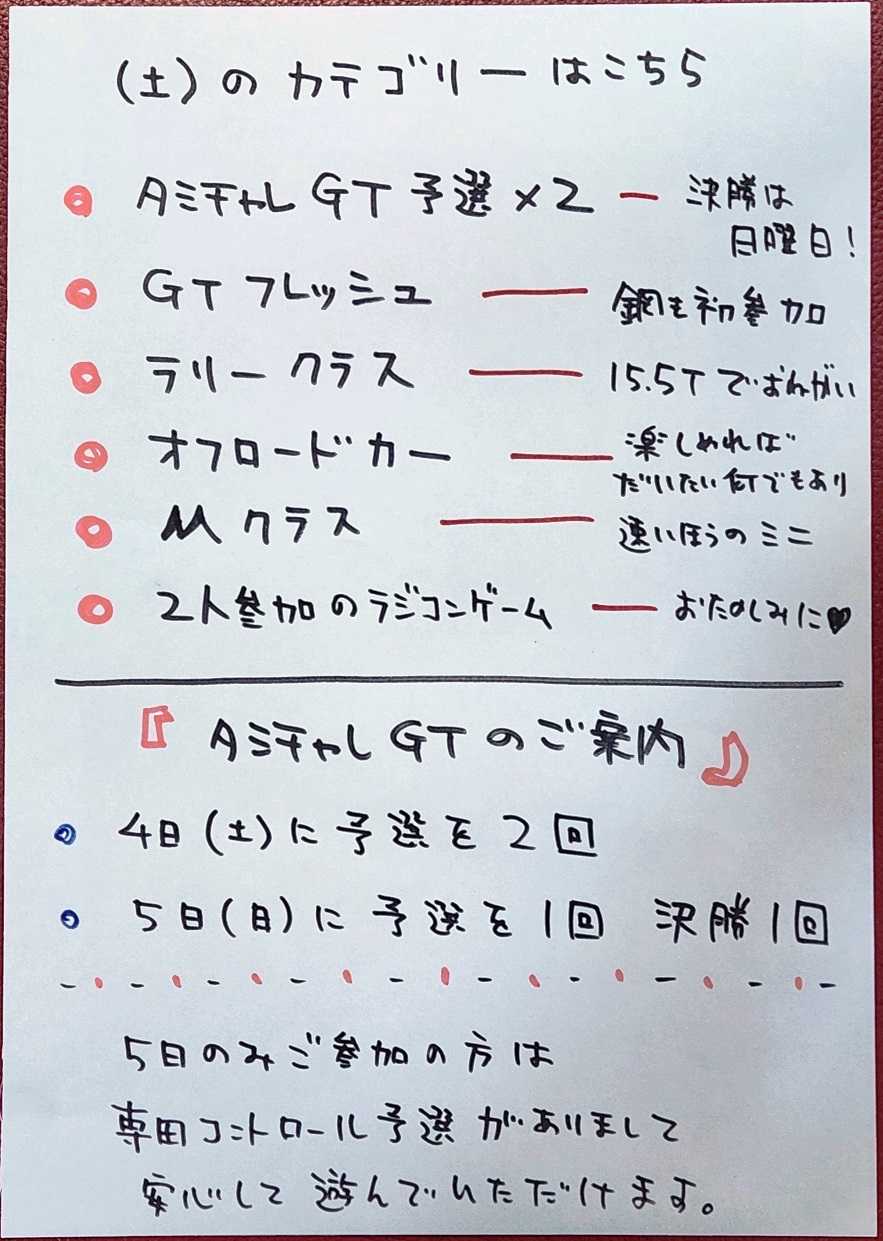 (土)のカテゴリーはこちら
タミチャレGT予選×2 ー 決勝は
日曜日!
GTフレッシュ ー 鋼も初参加
ラリークラス ー 15.5Tでおねがい
オフロードカー ー 楽しめれば
だいたい何でもあり
Mクラス ー 速いほうのミニ
2人参加のラジコンゲーム ー おたのしみに♥
『タミチャレGTのご案内』
4日(土)に予選を2回
5日(日)に予選を1回 決勝1回
5日のみご参加の方は
専用コントロール予選がありまして
安心して遊んでいただけます。